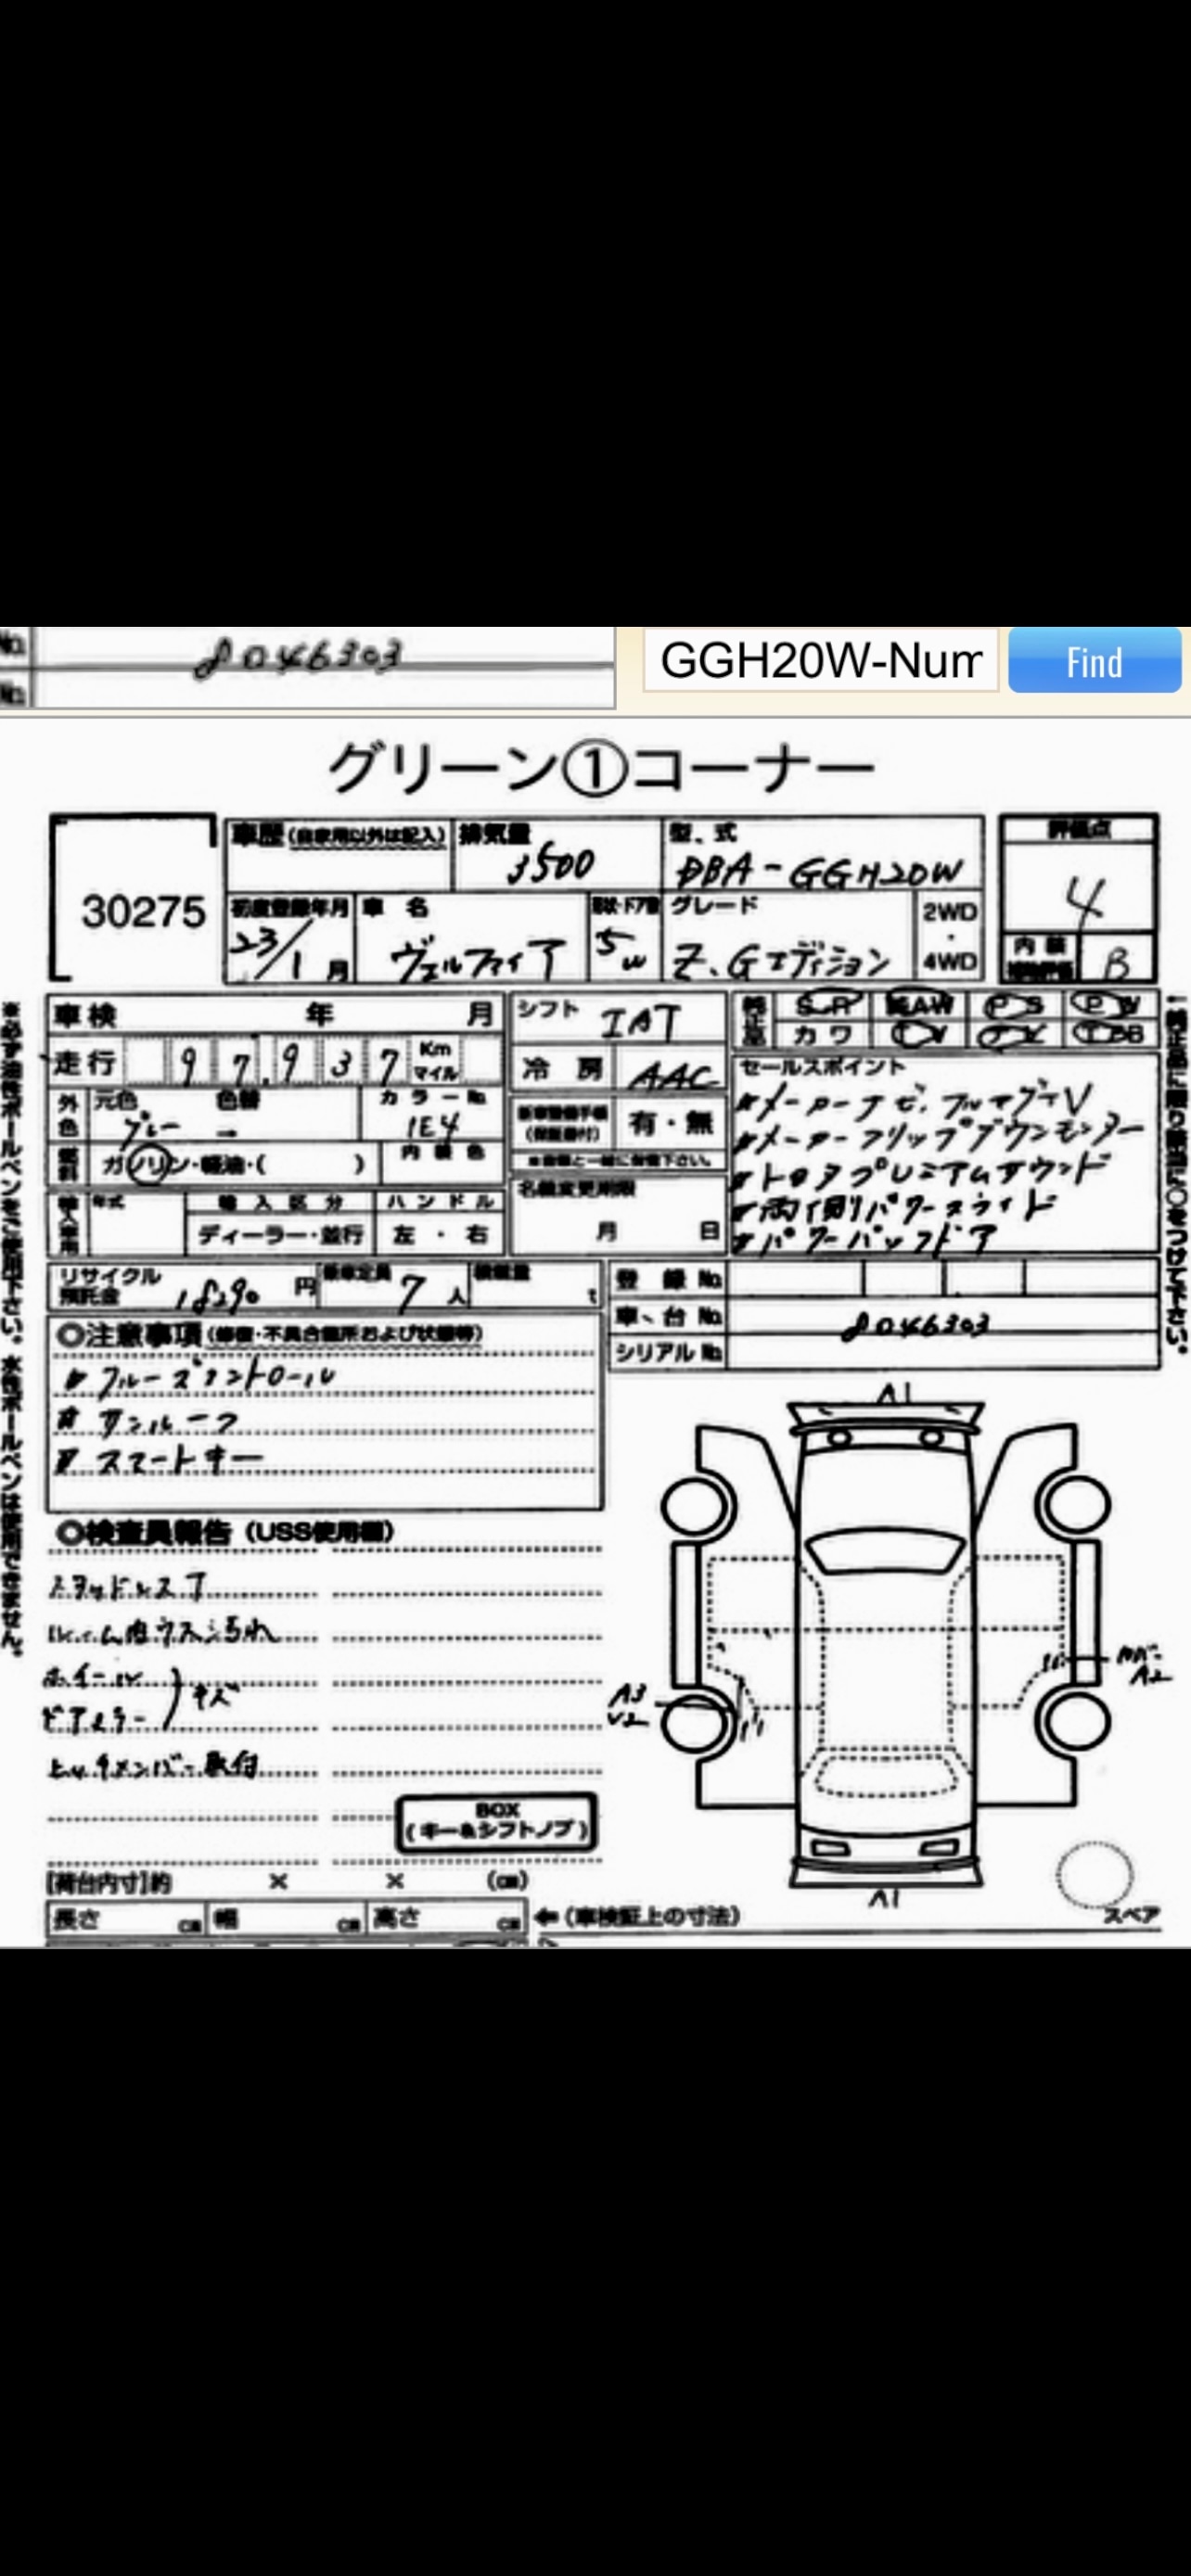 No.
8046303
No.
GGH20W-Num
Find
グリーン①コーナー
30275
車歴 (自家用以外は記入)
排気量
3500
型式
DBA-GGH20W
評価点
4
初度登録年月
23/1月
車名
ヴェルファイア
形状・ドア数
5W
グレード
Z.Gエディション
2WD・4WD
内装
B
車検 年 月
シフト
IAT
SR AW PS PW
カワ TV エアB
走行 97,937 Km マイル
冷房
AAC
セールスポイント
外色
元色 グレー
色替 →
カラーNo.
1E4
有・無
#メーカーナビ、フルセグTV
#メーカーフリップダウンモニター
#トヨタプレミアムサウンド
#両側パワースライド
#パワーバックドア
燃料
ガソリン・軽油・( )
内装色
※書類と一緒に保管下さい。
輸入車用
年式
輸入区分
ハンドル
ディーラー・並行
左・右
名義変更期限
月 日
リサイクル預託金
18290円
乗車定員
7人
積載量
t
登録No.
車台No.
8046303
シリアルNo.
◎注意事項 (修復・不具合箇所および状態等)
#クルーズコントロール
#サンルーフ
#スマートキー
◎検査員報告 (USS使用欄)
スタッドレス
ルーム内ウスシ汚れ
ホイール
ドアミラー
キズ
ヒッチメンバー取付
BOX
(キー&シフトノブ)
A1
A3
U2
A2
A1
スペア
[荷台内寸]約 × × (cm)
長さ cm 幅 cm 高さ cm ←(車検証上の寸法)
※必ず油性ボールペンをご使用下さい。水性ボールペンは使用できません。